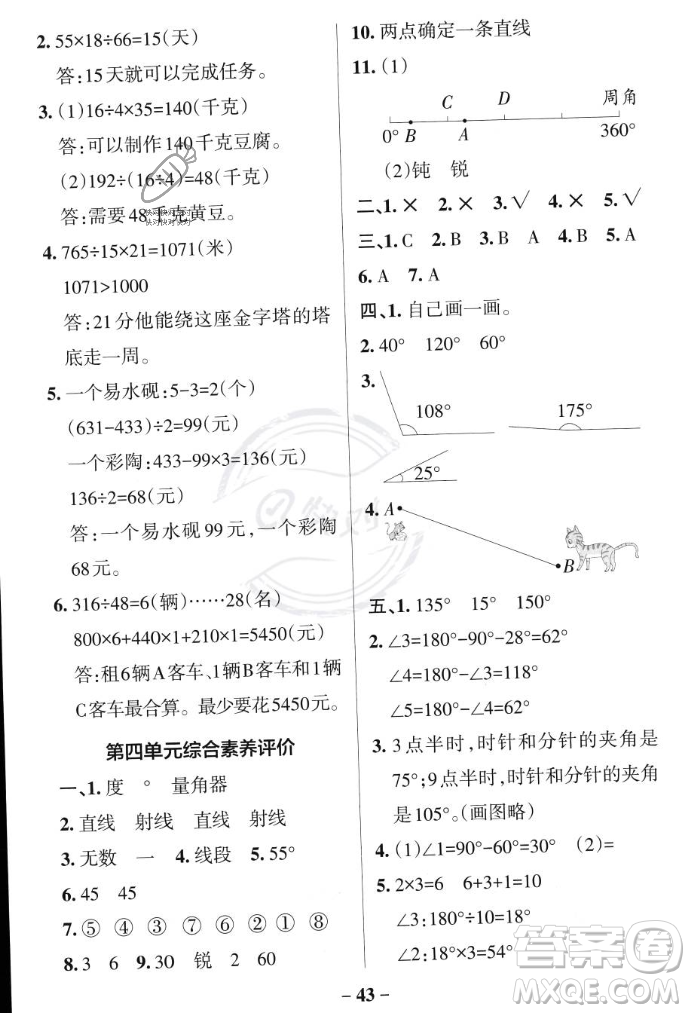 2. 55×18÷66=15(天)
答:15天就可以完成任务。
3. (1)16÷4×35=140(千克)
答:可以制作140千克豆腐。
(2)192÷(16÷4)=48(千克)
答:需要48千克黄豆。
4. 765÷15×21=1071(米)
1071>1000
答:21分他能绕这座金字塔的塔
底走一周。
5. 一个易水砚:5-3=2(个)
(631-433)÷2=99(元)
一个彩陶:433-99×3=136(元)
136÷2=68(元)
答:一个易水砚99元,一个彩陶
68元。
6. 316÷48=6(辆)……28(名)
800×6+440×1+210×1=5450(元)
答:租6辆A客车、1辆B客车和1辆
C客车最合算。最少要花5450元。
第四单元综合素养评价
一、1. 度 ° 量角器
2. 直线 射线 直线 射线
3. 无数 一 4. 线段 5. 55°
6. 45 45
7. ⑤ ④ ③ ⑥ ⑦ ② ① ⑧
8. 3 6 9. 30 锐 2 60
10. 两点确定一条直线
11. (1)
C D 周角
0° B A 360°
(2)钝 锐
二、1. × 2. × 3. √ 4. × 5. √
三、1. C 2. B 3. B 4. A 5. B
6. A 7. A
四、1. 自己画一画。
2. 40° 120° 60°
3.
108° 175°
25°
4. A
B
五、1. 135° 15° 150°
2. ∠3=180°-90°-28°=62°
∠4=180°-62°=118°
∠5=180°-118°=62°
3. 3点半时,时针和分针的夹角是
75°;9点半时,时针和分针的夹角
是105°。(画图略)
4. (1)∠1=90°-60°=30° (2)=
5. 2×3=6 6+3+1=10
∠3:180°÷10=18°
∠2:18°×3=54°
答案圈
MXQE.COM
- 43 -